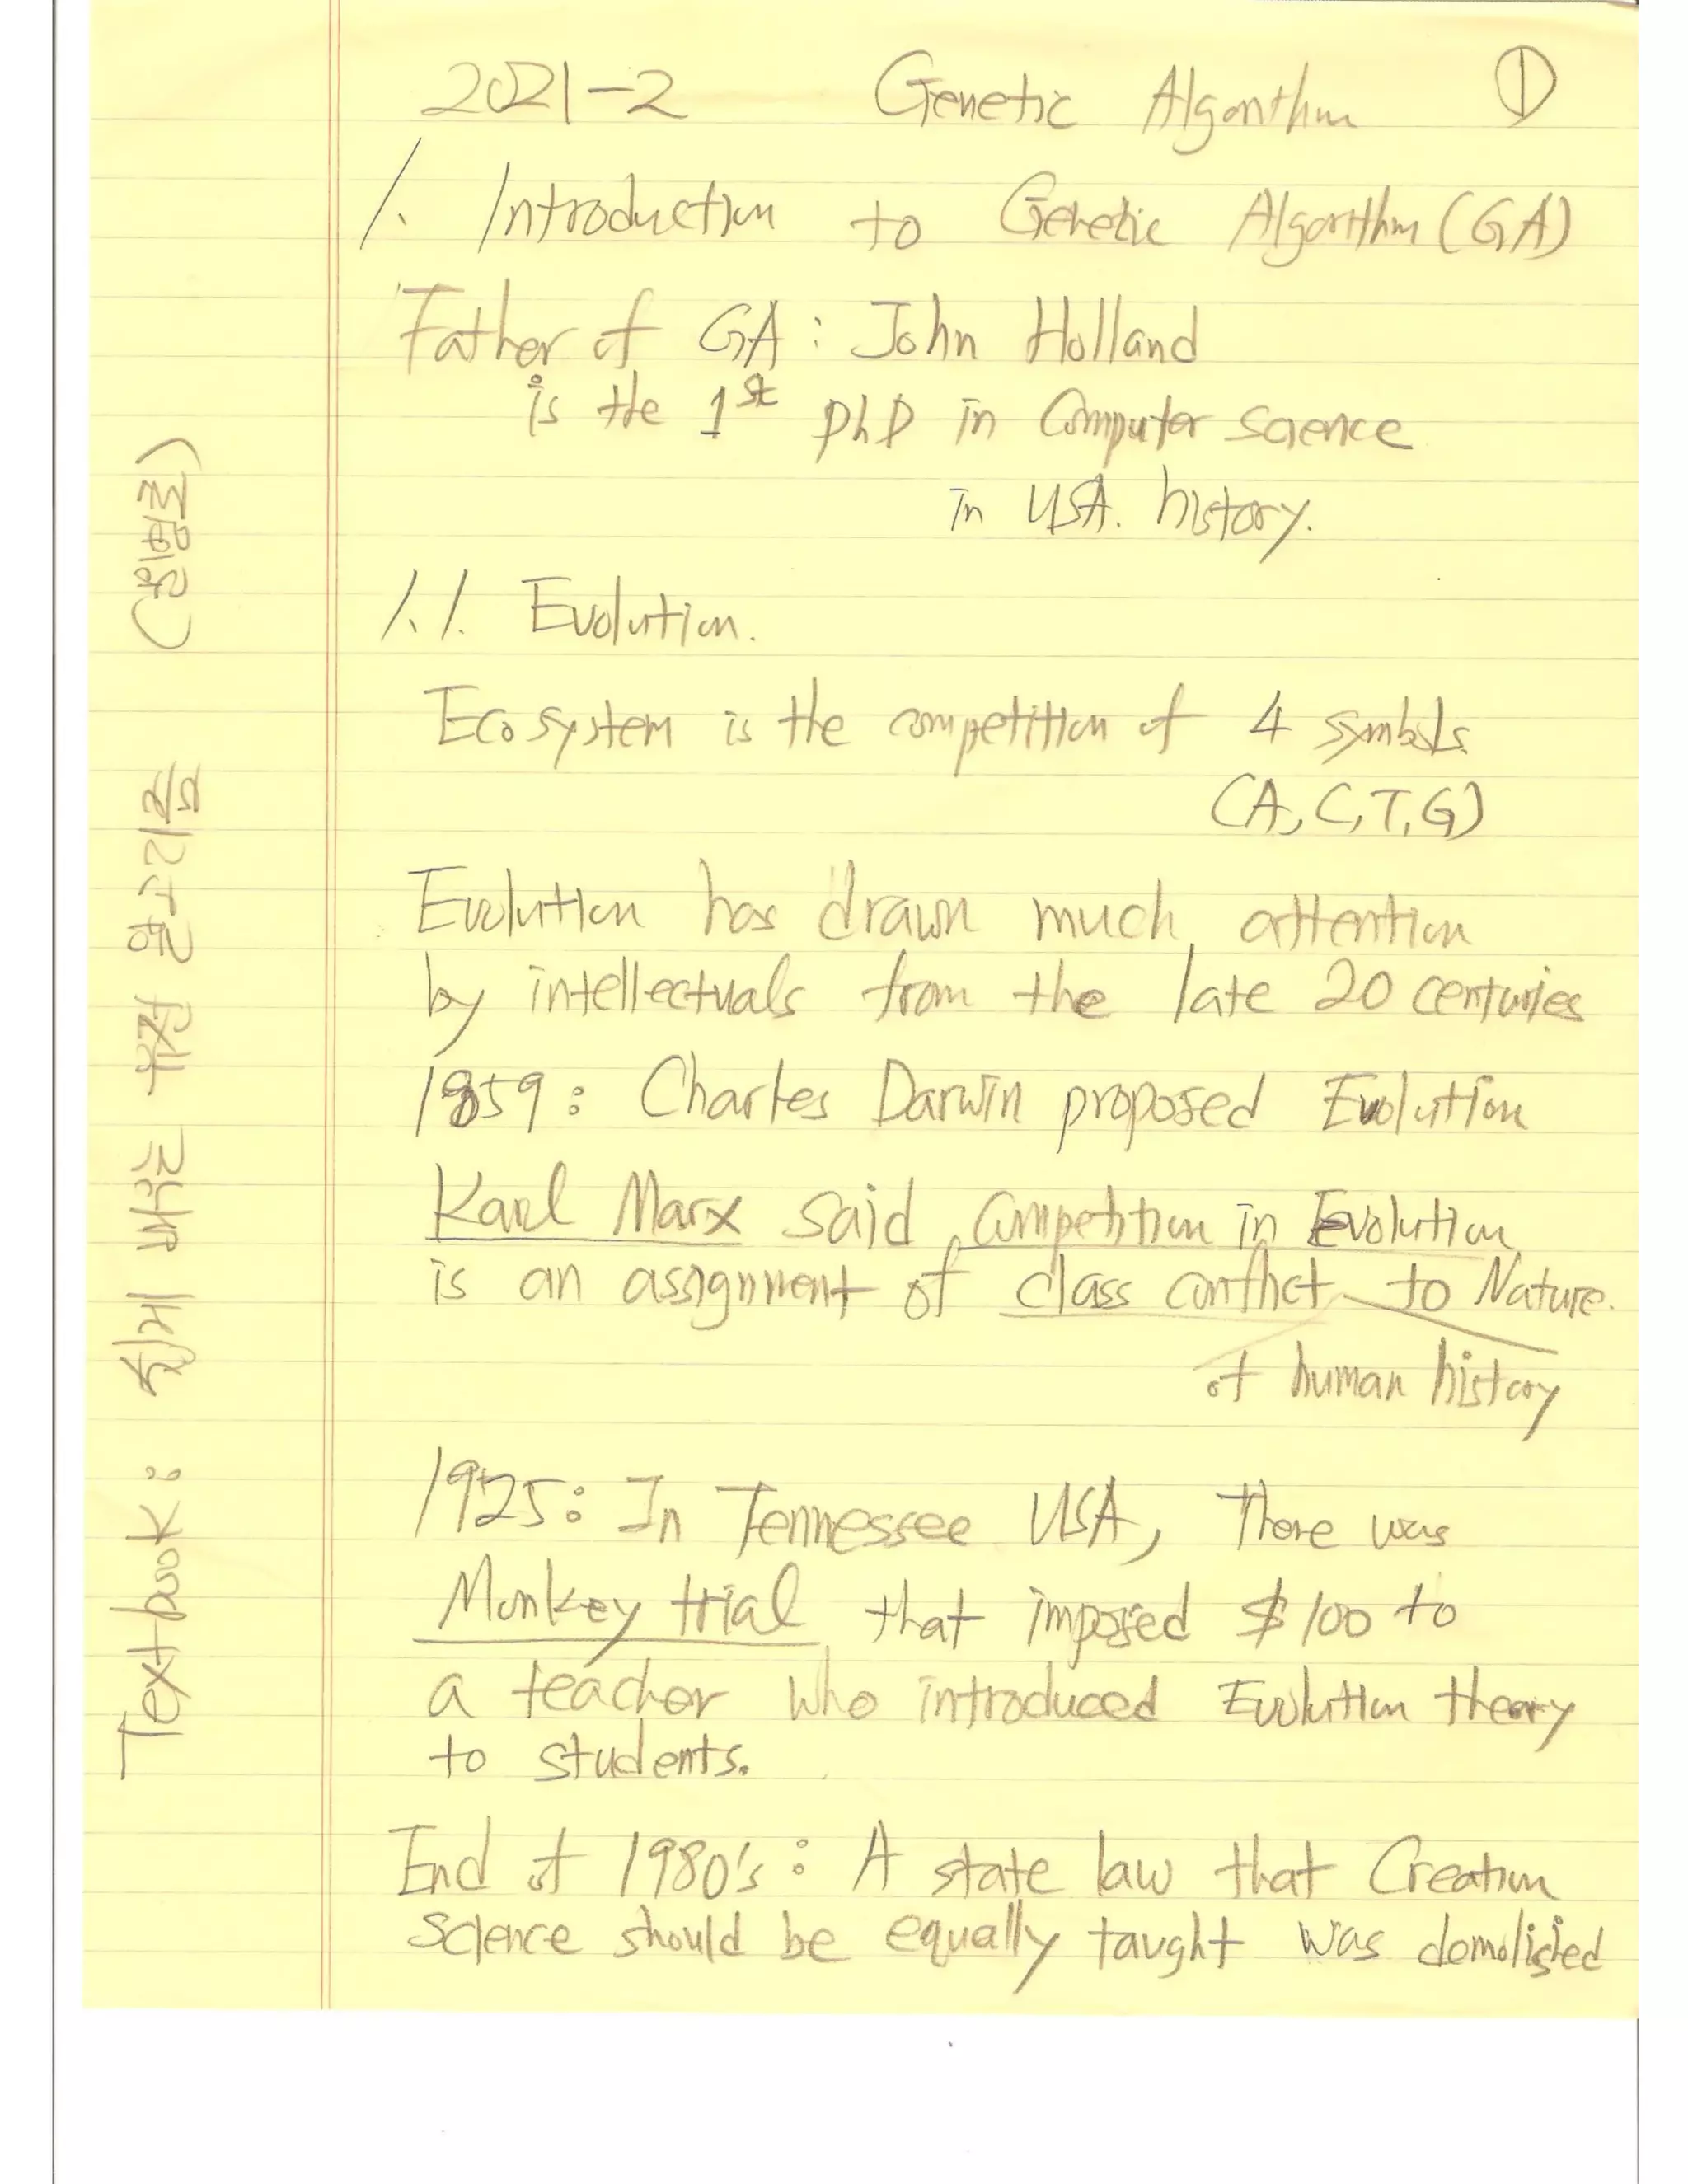 2021-2 Genetic Algorithm ①
1. Introduction to Genetic Algorithm (GA)
Father of GA : John Holland
is the 1st PhD in Computer science
in USA. history.
1.1. Evolution.
Ecosystem is the competition of 4 symbols.
(A, C, T, G)
Evolution has drawn much attention
by intellectuals from the late 20 centuries
1859 : Charles Darwin proposed Evolution
Karl Marx said, Competition in Evolution
is an assignment of class conflict to Nature.
of human history
1925: In Tennessee USA, There was
Monkey trial that imposed $100 to
a teacher who introduced Evolution theory
to students.
End of 1980's : A state law that Creation
Science should be equally taught was demolished
Textbook : 쉽게 배우는 유전 알고리즘 (문병로)